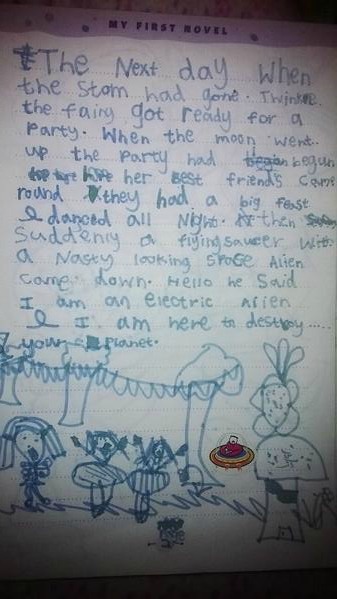 MY FIRST NOVEL
The Next day When
the Stom had gone. Twinkle
the fairy got ready for a
Party. When the moon went
up the Party had began begun
her Best friends came
round they had a big feast
& danced all Night. then
Suddenly a flying saucer with
a Nasty looking Alien
came down. Hello he Said
I am an electric Alien
& I am here to destroy.....
your Planet.